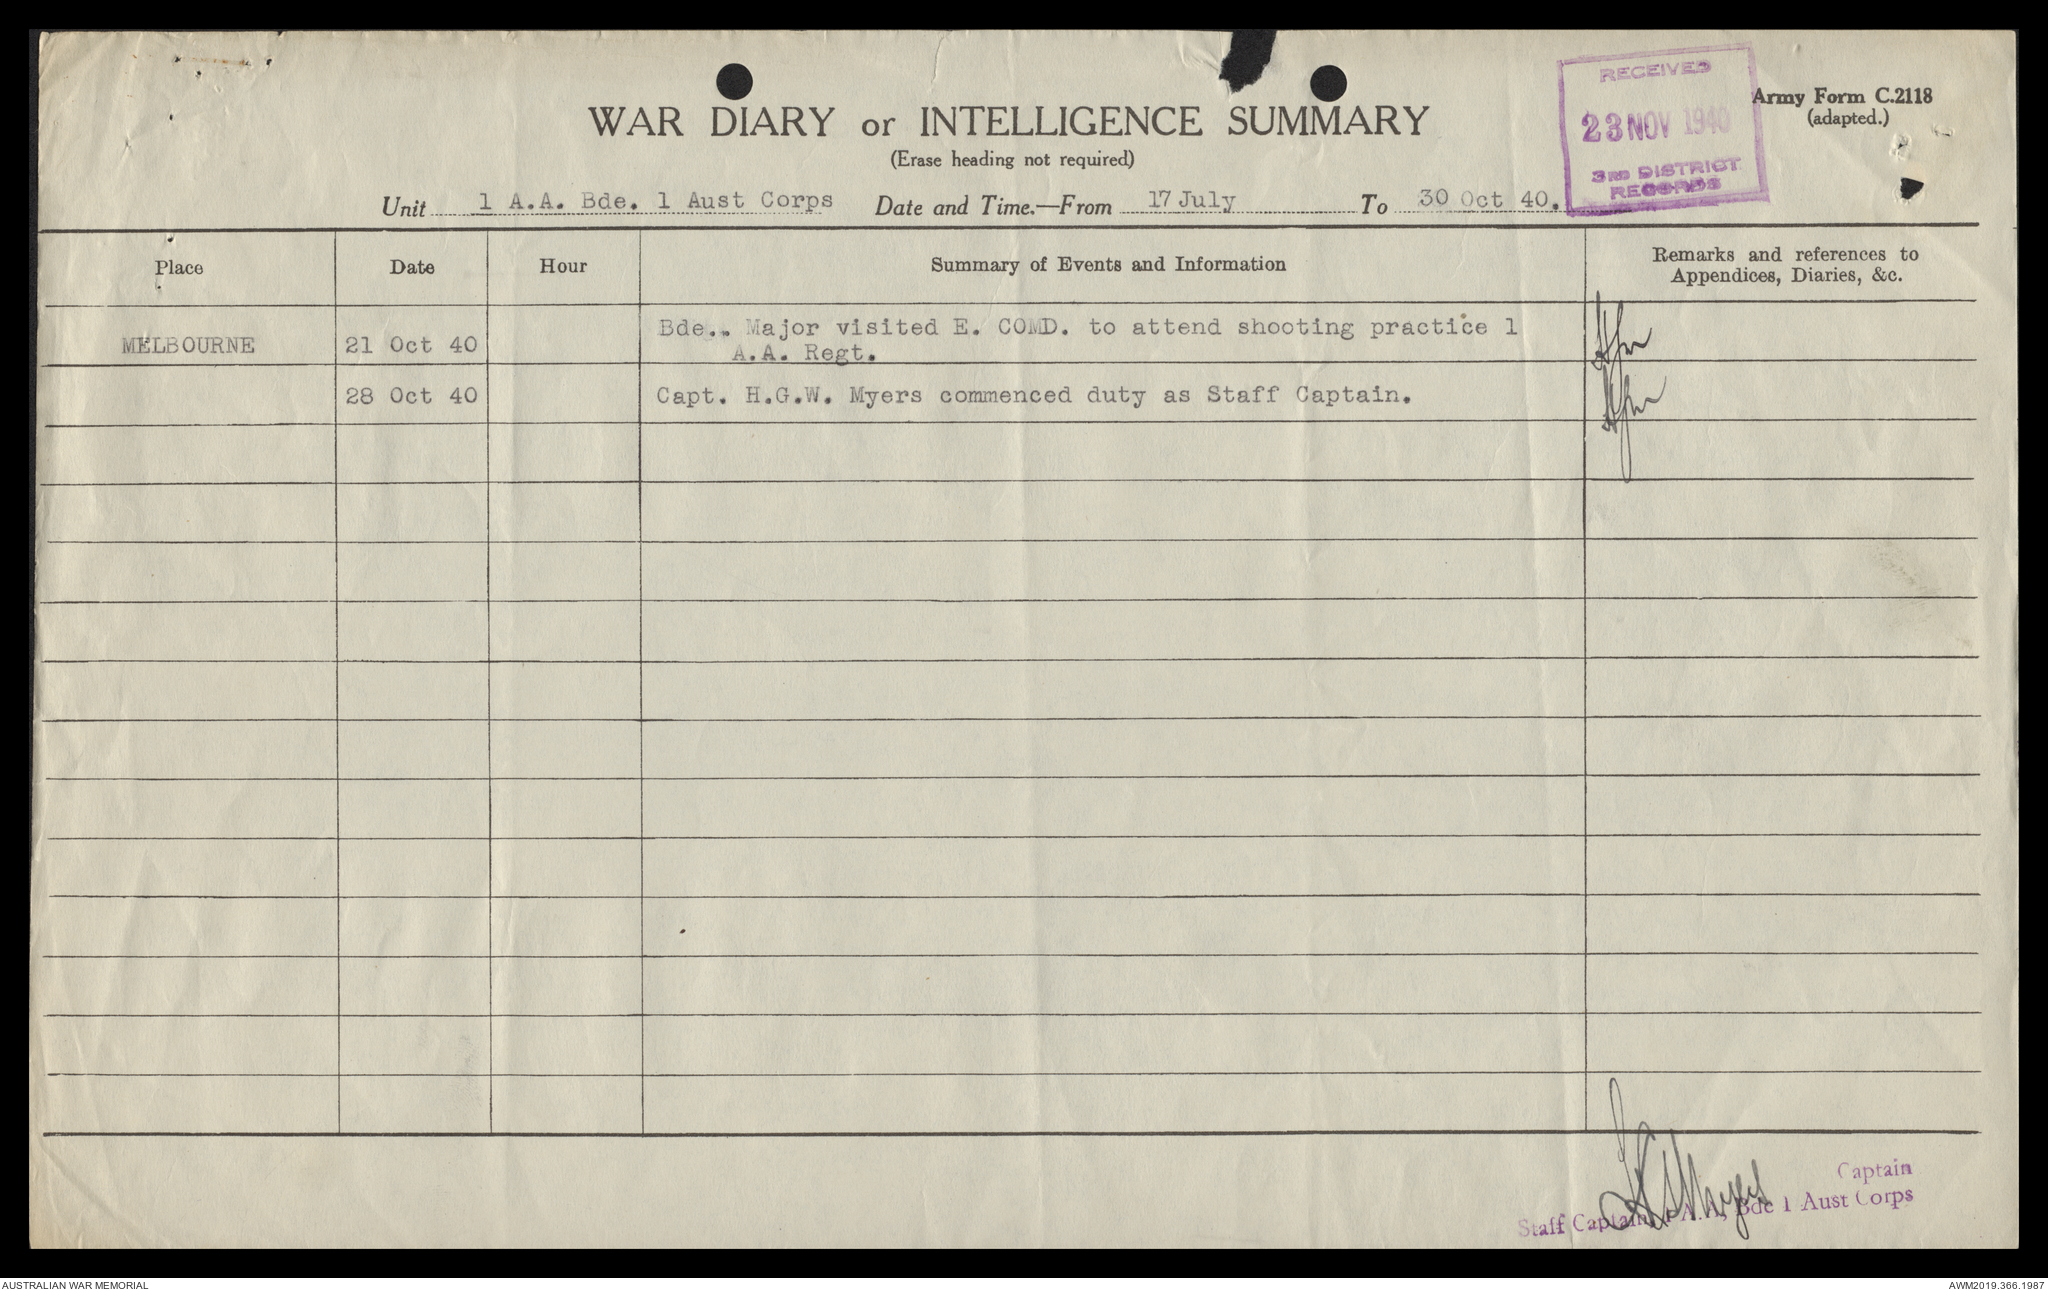 WAR DIARY or INTELLIGENCE SUMMARY
(Erase heading not required)
Army Form C.2118
(adapted.)
RECEIVED
23 NOV 1940
3RD DISTRICT
RECORDS
Unit 1 A.A. Bde. 1 Aust Corps Date and Time.—From 17 July To 30 Oct 40.
Place Date Hour Summary of Events and Information Remarks and references to
Appendices, Diaries, &c.
MELBOURNE 21 Oct 40 Bde.. Major visited E. COMD. to attend shooting practice 1
A.A. Regt.
28 Oct 40 Capt. H.G.W. Myers commenced duty as Staff Captain.
Captain
Staff Captain 1 A.A. Bde 1 Aust Corps
AUSTRALIAN WAR MEMORIAL
AWM2019.366.1987